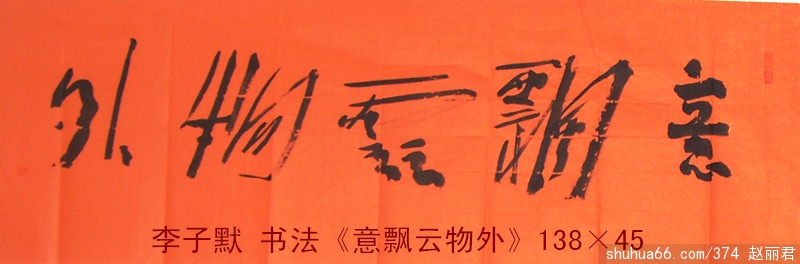 意飄雲物外
李子默 书法《意飘云物外》138×45
shuhua66.com/374 赵丽君